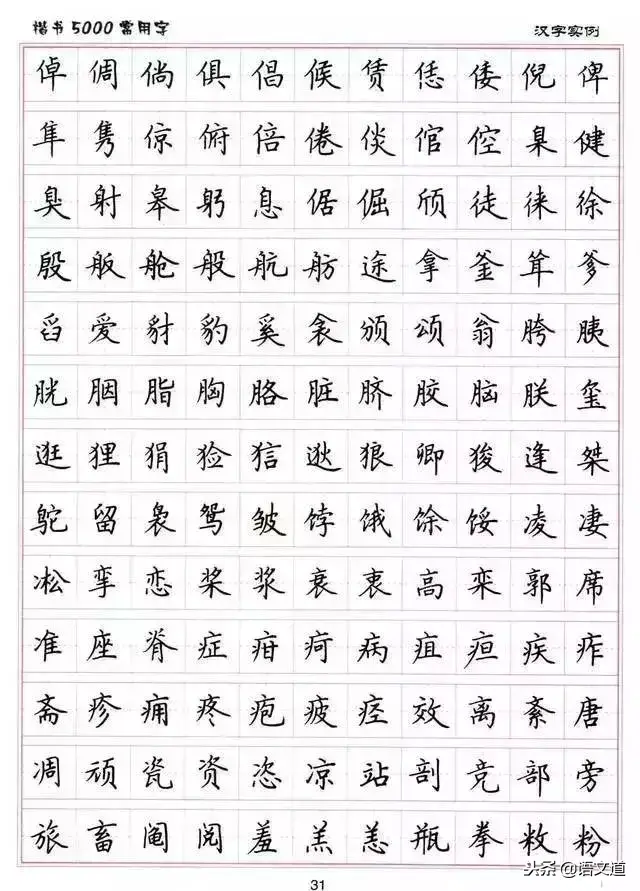 楷书5000常用字 汉字实例
倬 倜 倘 俱 倡 候 赁 恁 倭 倪 俾
隼 隽 倞 俯 倍 倦 倓 倌 倥 臬 健
臭 射 皋 躬 息 倨 倔 颀 徒 徕 徐
殷 舨 舱 般 航 舫 途 拿 釜 耸 爹
舀 爱 豺 豹 奚 衾 颁 颂 翁 胯 胰
胱 胭 脂 胸 胳 脏 脐 胶 脑 朕 玺
逛 狸 狷 猃 狺 逖 狼 卿 狻 逢 桀
鸵 留 袅 鸳 皱 饽 饿 馀 馁 凌 凄
凇 挛 恋 桨 浆 衰 衷 高 栾 郭 席
准 座 脊 症 疳 疴 病 疽 疸 疾 痄
斋 疹 痈 疼 疱 疲 痉 效 离 紊 唐
凋 颃 瓷 资 恣 凉 站 剖 竞 部 旁
旅 畜 阄 阅 羞 羔 恙 瓶 拳 敉 粉
31
头条@语文道